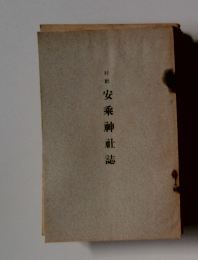 安乘神社誌